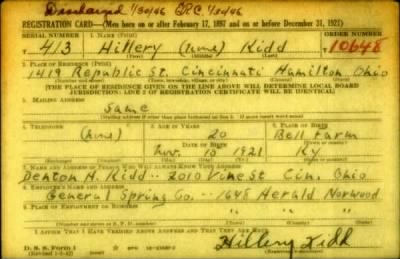 Discharged 1/30/46 ERC. 1/30/46
REGISTRATION CARD—(Men born on or after February 17, 1897 and on or before December 31, 1921)
SERIAL NUMBER 1. NAME (Print) ORDER NUMBER
T 413 Hillery (none) Kidd 10648
(First) (Middle) (Last)
2. PLACE OF RESIDENCE (Print)
1419 Republic St. Cincinnati Hamilton Ohio
(Number and street) (Town, township, village, or city) (County) (State)
[THE PLACE OF RESIDENCE GIVEN ON THE LINE ABOVE WILL DETERMINE LOCAL BOARD
JURISDICTION; LINE 2 OF REGISTRATION CERTIFICATE WILL BE IDENTICAL]
3. MAILING ADDRESS
Same
[Mailing address if other than place indicated on line 2. If same insert word same]
4. TELEPHONE 5. AGE IN YEARS 6. PLACE OF BIRTH
(none) 20 Bell Farm
DATE OF BIRTH
Nov. 10 1921 Ky
(Exchange) (Number) (Mo.) (Day) (Yr.) (State or country)
7. NAME AND ADDRESS OF PERSON WHO WILL ALWAYS KNOW YOUR ADDRESS
Denton H. Kidd -- 2010 Vine St Cin. Ohio
8. EMPLOYER'S NAME AND ADDRESS
General Spring Co. -- 1648 Herald Norwood
9. PLACE OF EMPLOYMENT OR BUSINESS
" " " "
(Number and street or R. F. D. number) (Town) (County) (State)
I AFFIRM THAT I HAVE VERIFIED ABOVE ANSWERS AND THAT THEY ARE TRUE.
D. S. S. Form 1 Hillery Kidd
(Revised 1-1-42)